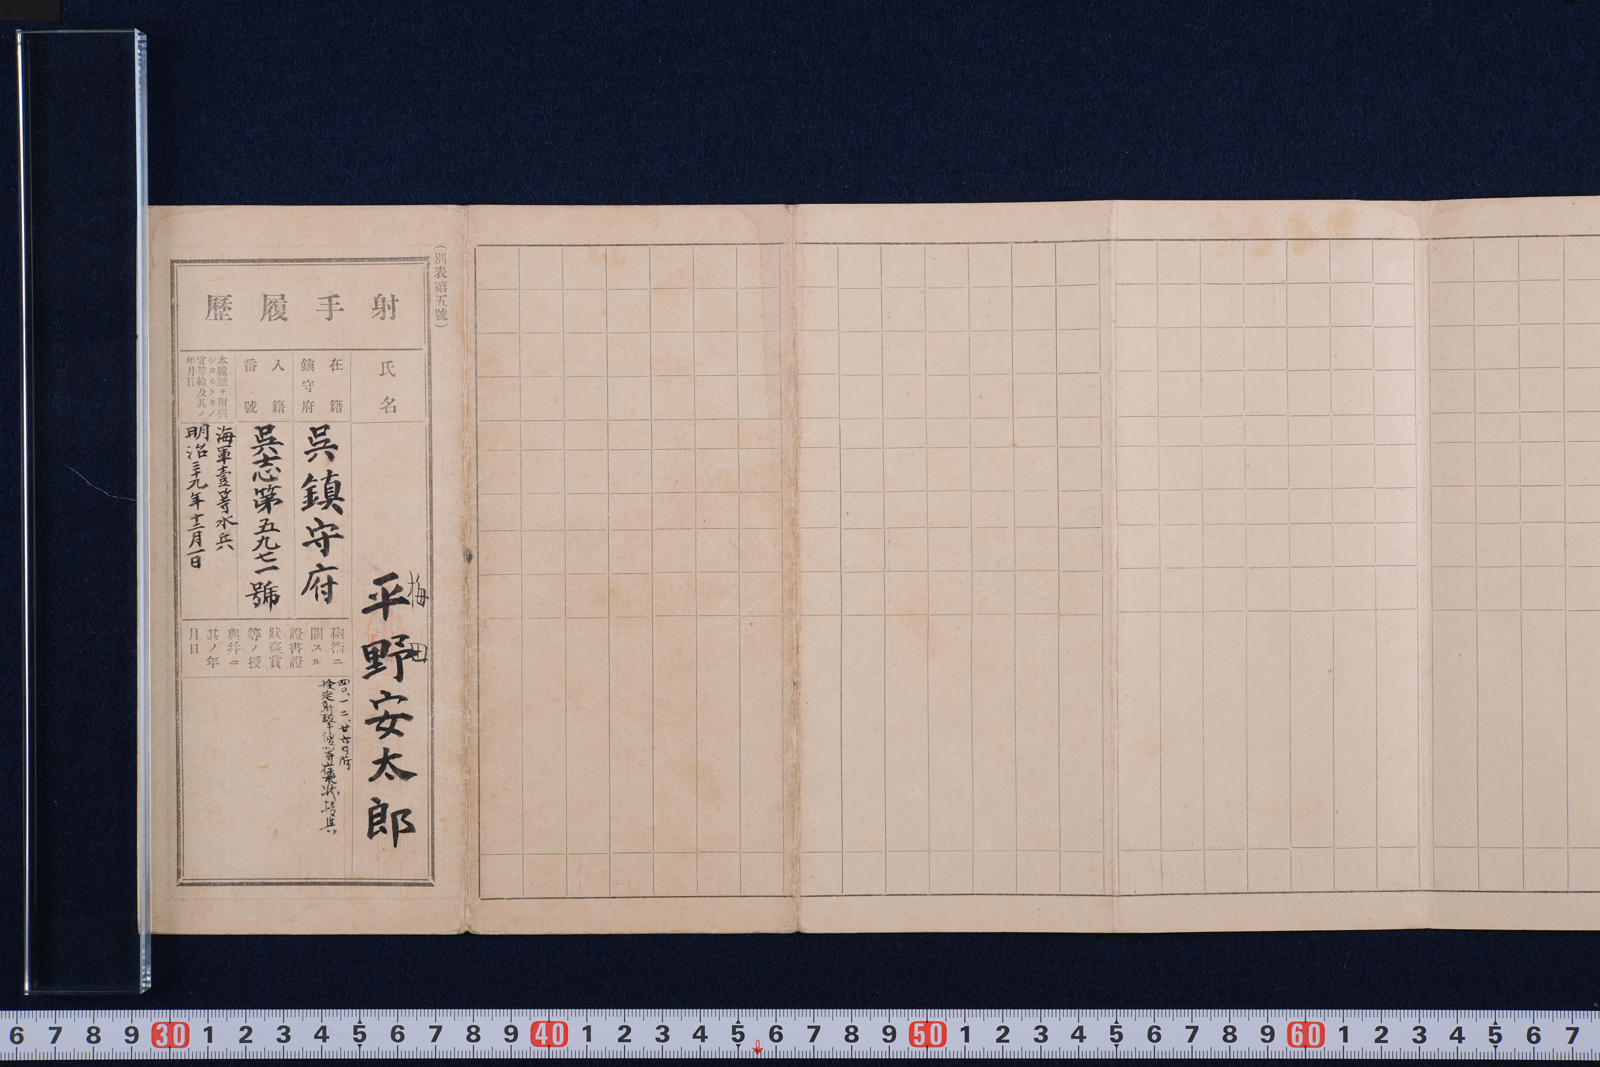 (別表第五號)
射手履歷
氏名
梅田
平野安太郎
在籍
鎮守府
呉鎮守府
入籍
番號
呉志第五九七一號
本履歷ヲ附與
シタルトキノ
官等給及其ノ
年月日
海軍壹等水兵
明治三十九年十二月一日
砲術ニ
關スル
證書證
狀褒賞
等ノ授
與幷ニ
其ノ年
月日
四〇、一二、廿六日附
6 7 8 9 30 1 2 3 4 5 6 7 8 9 40 1 2 3 4 5 6 7 8 9 50 1 2 3 4 5 6 7 8 9 60 1 2 3 4 5 6 7